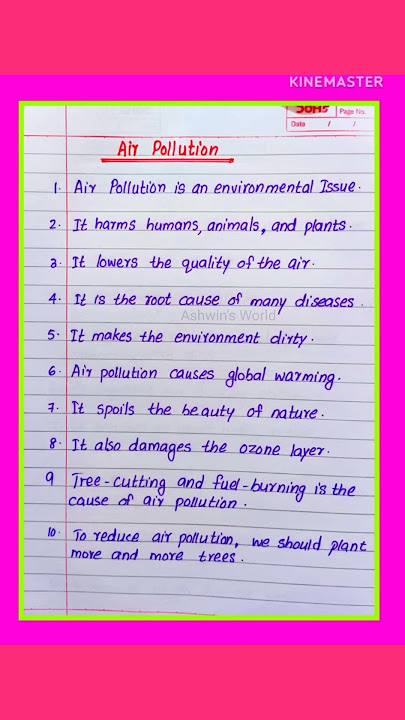 KINEMASTER
Page No.
Date / /
Air Pollution
1. Air Pollution is an environmental Issue.
2. It harms humans, animals, and plants.
3. It lowers the quality of the air.
4. It is the root cause of many diseases.
Ashwin's World
5. It makes the environment dirty.
6. Air pollution causes global warming.
7. It spoils the beauty of nature.
8. It also damages the ozone layer.
9 Tree-cutting and fuel-burning is the
cause of air pollution.
10. To reduce air pollution, we should plant
more and more trees.